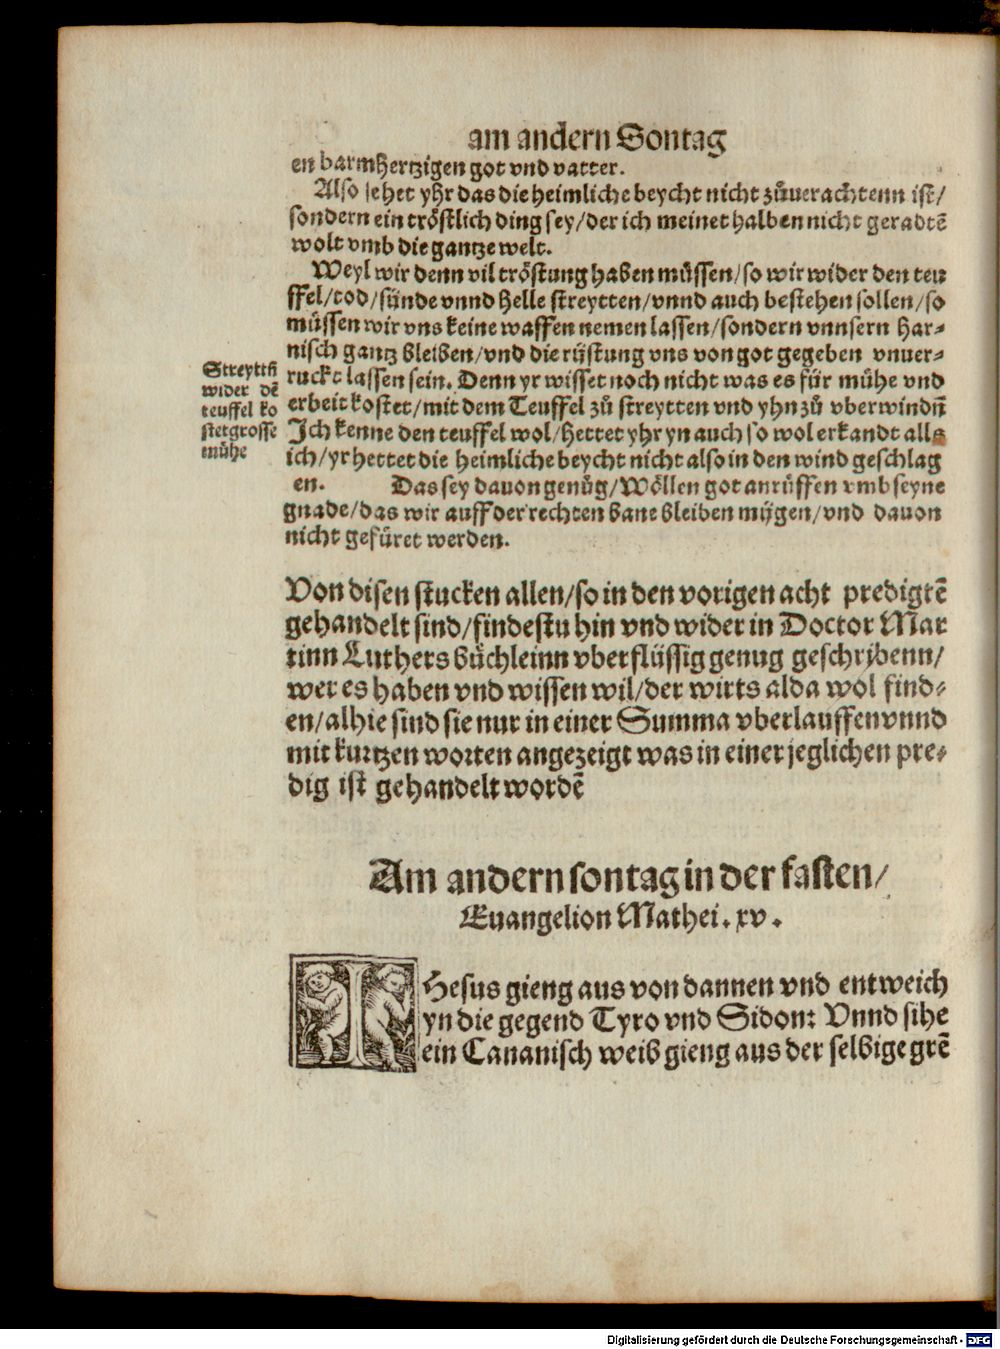 am andern Sontag
en barmhertzigen got vnd vatter.
Also sehet yhr das die heimliche beycht nicht zůuerachtenn ist/
sondern ein tröstlich ding sey/der ich meinet halben nicht geradtē
wolt vmb die gantze welt.
Weyl wir denn vil tröstung haben müssen/so wir wider den teu
ffel/tod/sünde vnnd helle streytten/vnnd auch bestehen sollen/so
müssen wir vns keine waffen nemen lassen/sondern vnnsern har⸗
nisch gantz bleiben/vnd die rüstung vns von got gegeben vnuer⸗
ruckt lassen sein. Denn yr wisset noch nicht was es für mühe vnd
erbeit kostet/mit dem Teuffel zů streytten vnd yhn zů vberwindn̄
Ich kenne den teuffel wol/hettet yhr yn auch so wol erkandt alls
ich/yr hettet die heimliche beycht nicht also in den wind geschlag
en. Das sey dauon genůg/Wöllen got anrůffen vmb seyne
gnade/das wir auff der rechten bane bleiben mỹgen/vnd dauon
nicht gefüret werden.
Streyttn̄
wider dē
teuffel ko
stet grosse
mühe
Von disen stucken allen/so in den vorigen acht predigtē
gehandelt sind/findestu hin vnd wider in Doctor Mar
tinn Luthers büchleinn vberflüssig genug geschrybenn/
wer es haben vnd wissen wil/der wirts alda wol find⸗
en/alhie sind sie nur in einer Summa vberlauffen vnnd
mit kurtzen worten angezeigt was in einer jeglichen pre⸗
dig ist gehandelt wordē
Am andern sontag in der fasten/
Euangelion Mathei. xv.
IHesus gieng aus von dannen vnd entweich
yn die gegend Tyro vnd Sidon: Vnnd sihe
ein Cananisch weib gieng aus der selbige grē
Digitalisierung gefördert durch die Deutsche Forschungsgemeinschaft - DFG